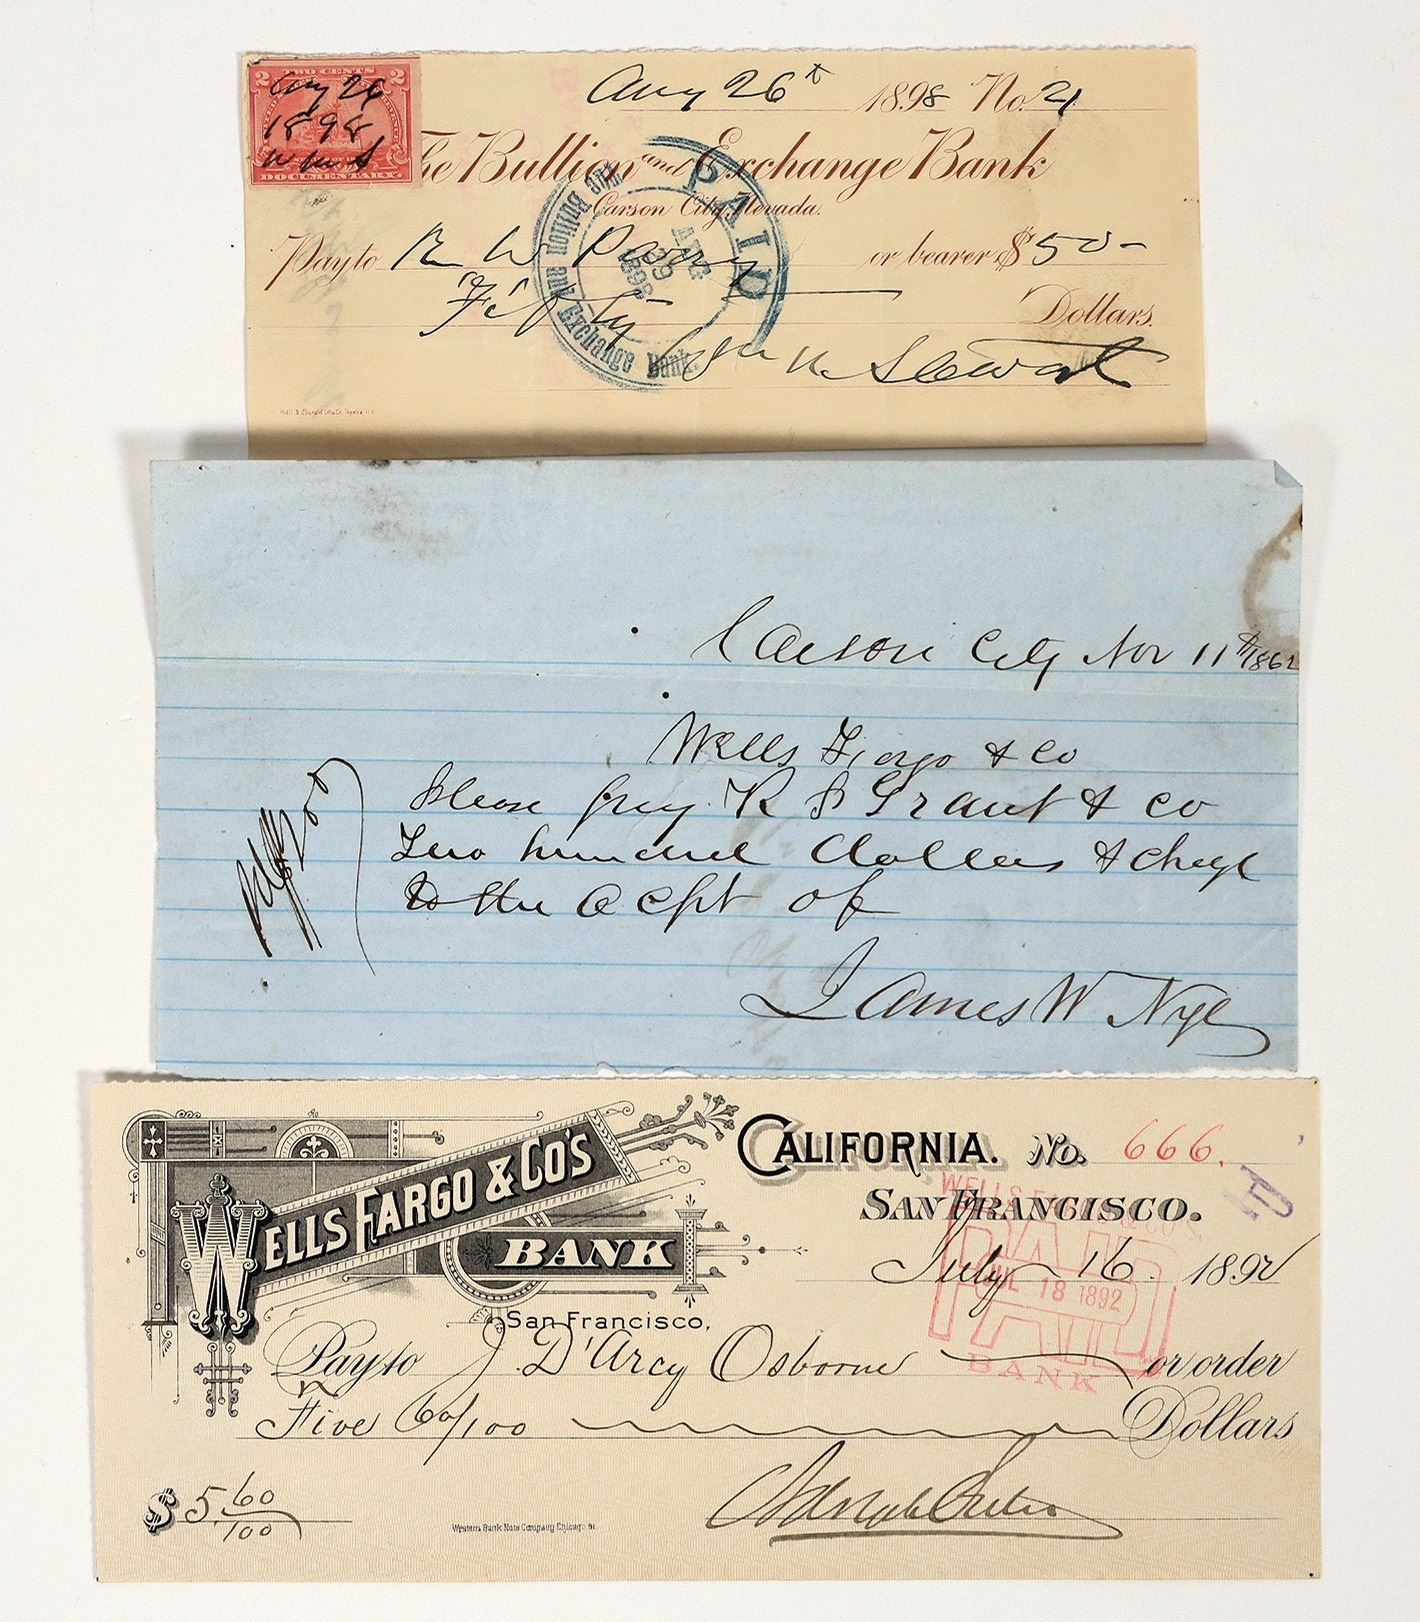 TWO CENTS
2 2
Aug 26
1898
Wm S
DOCUMENTARY.
Aug 26th 1898 No. 21
The Bullion and Exchange Bank
Carson City, Nevada.
Pay to R W Parry or bearer $50-
Fifty Dollars.
Wm M Stewart
PAID
AUG
29
1898
The Bullion and Exchange Bank.
Carson City Nov 11th 1862
Wells Fargo & Co
Please pay R S Grant & Co
Two hundred dollars & chge
to the acpt of
James W Nye
200
CALIFORNIA. No. 666.
SAN FRANCISCO.
July 16 1892
WELLS FARGO & CO'S
BANK
San Francisco,
Pay to J. D'Arcy Osborne or order
Five 60/100 Dollars
$ 5.60/100
Western Bank Note Company Chicago 91.
WELLS FARGO & CO'S
PAID
JUL 18 1892
PAID
BANK